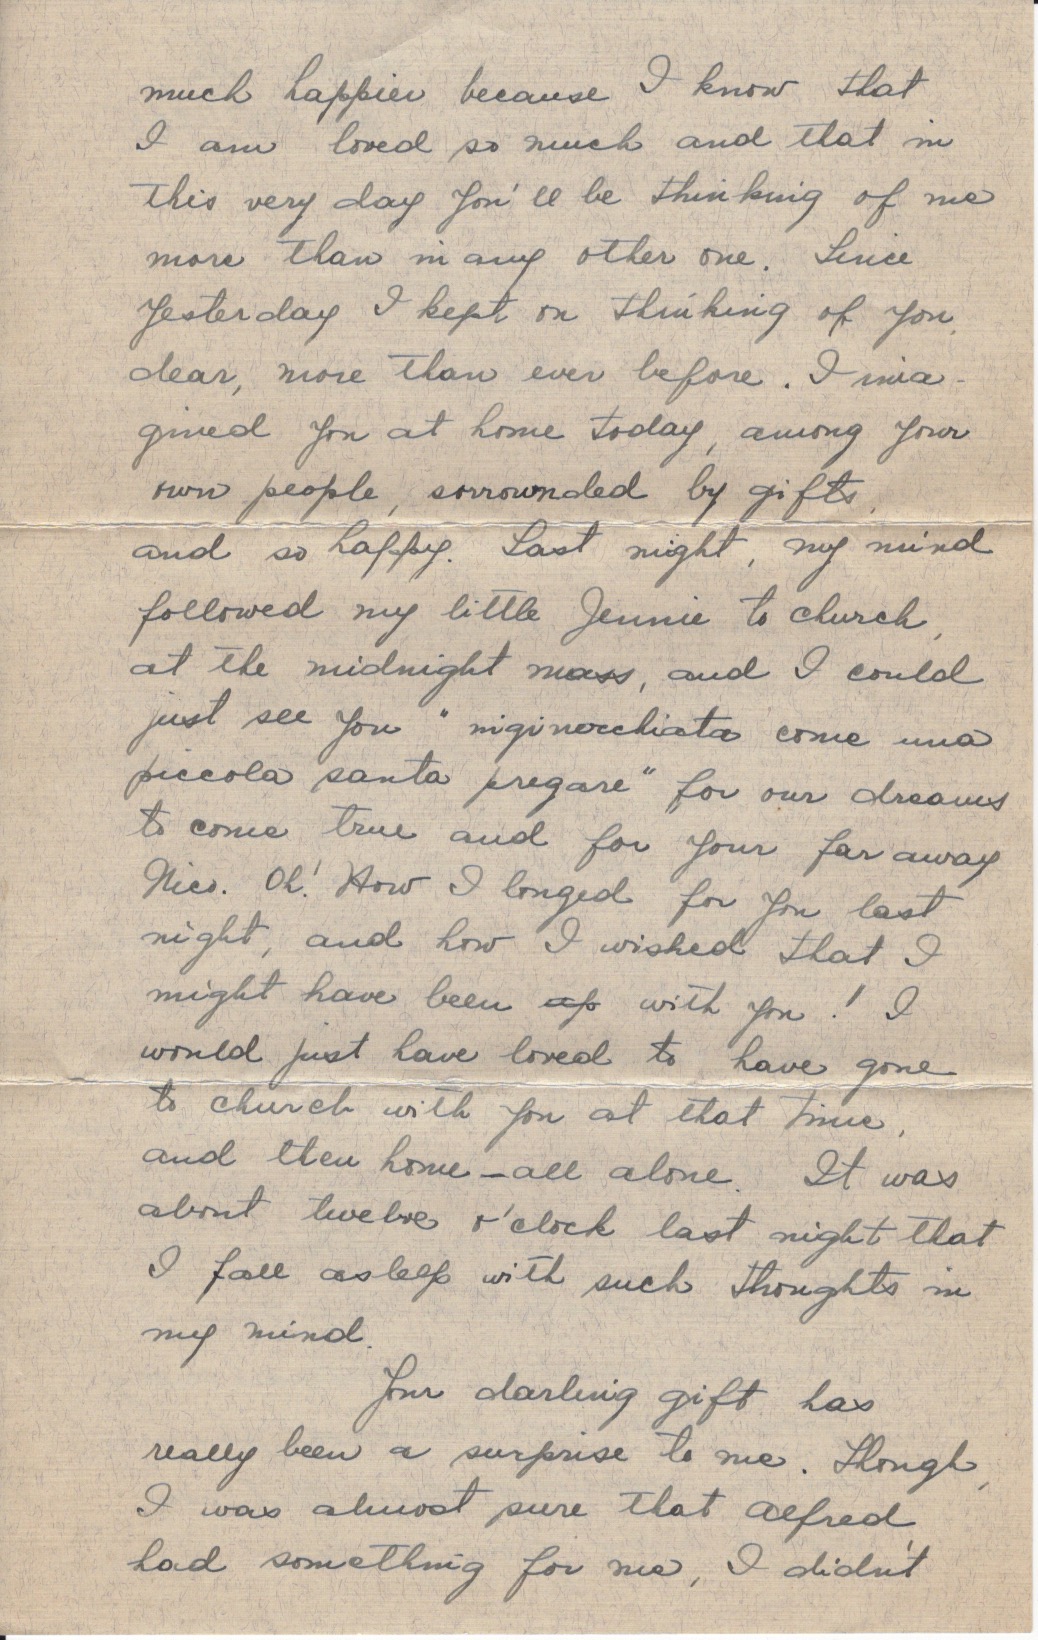 much happier because I know that
I am loved so much and that in
this very day you'll be thinking of me
more than in any other one. Since
yesterday I kept on thinking of you,
dear, more than ever before. I ima-
gined you at home today, among your
own people, sorrownded by gifts,
and so happy. Last night, my mind
followed my little Jennie to church,
at the midnight mass, and I could
just see you "niginocchiata come una
piccola santa pregare" for our dreams
to come true and for your far away
Nico. Oh! How I longed for you last
night, and how I wished that I
might have been with you! I
would just have loved to have gone
to church with you at that time,
and then home – all alone. It was
about twelve o'clock last night that
I fall asleep with such thoughts in
my mind.
Your darling gift has
really been a surprise to me. Though,
I was almost sure that Alfred
had something for me, I didn't